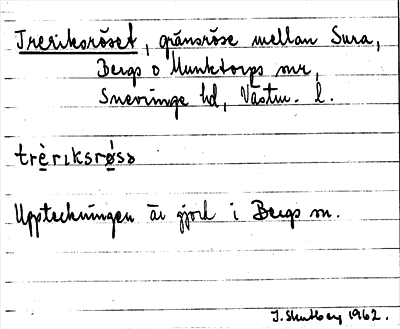 Treriksröset, gränsröse mellan Sura,
Bergs o Munktorps snr,
Snevringe hd, Västm. l.
trèriksrø̀sə
Uppteckningen är gjord i Bergs sn.
1962.